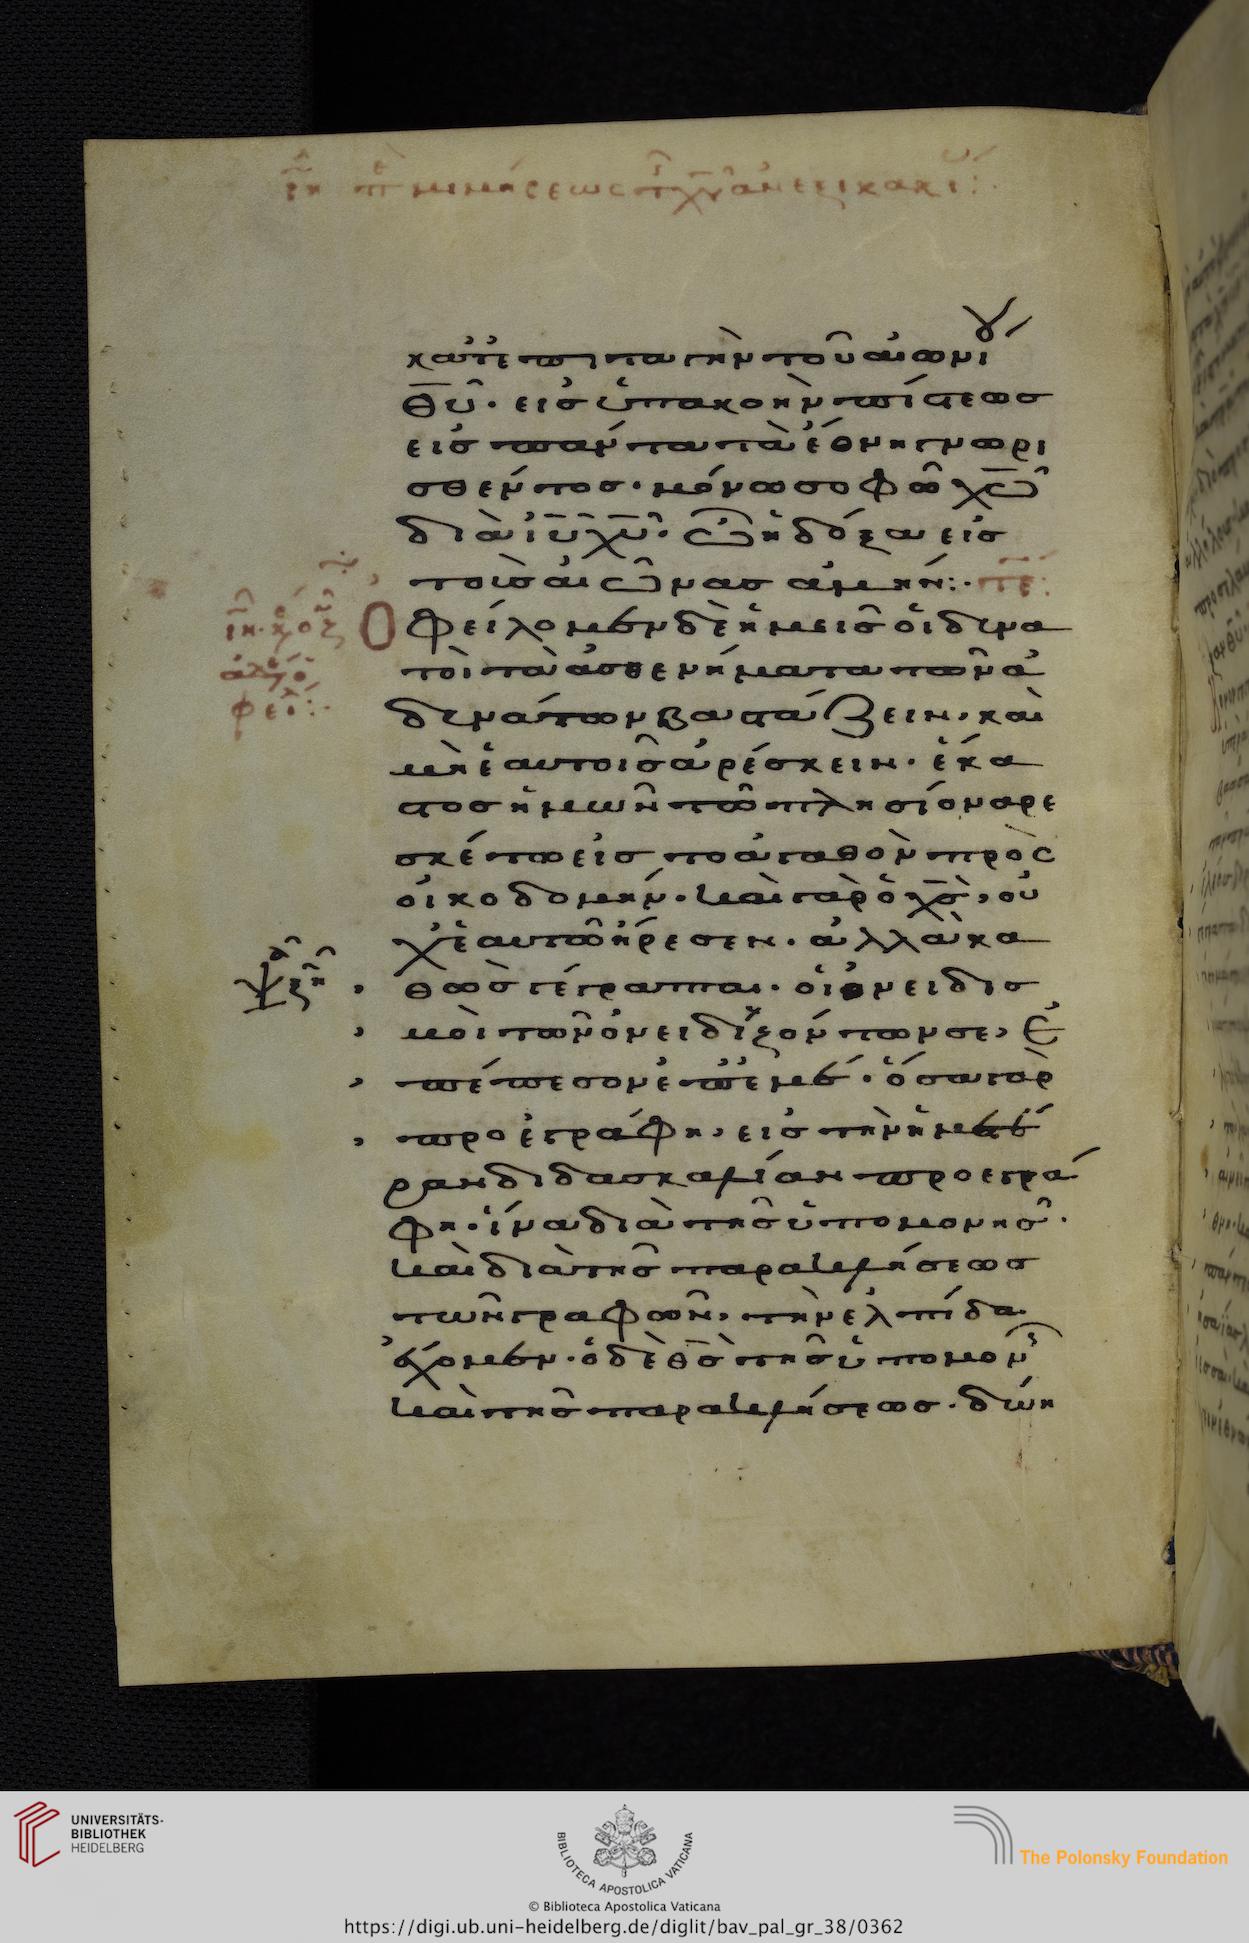 κατ' ἐπιταγὴν τοῦ αἰωνίου
θ̅υ̅· εἰς ὑπακοὴν πίστεως
εἰς πάντα τὰ ἔθνη γνωρι
σθέντος· μόνω σοφῶ χ̅ω̅
διὰ ι̅υ̅ χ̅υ̅· ὧ ἡ δόξα εἰς
τοὺς αἰῶνας ἀμήν:· τέ:
Ὀφείλομεν δὲ ἡμεῖς οἱ δυνα
τοὶ τὰ ἀσθενήματα τῶν ἀ
δυνάτων βαστάζειν, καὶ
μὴ ἑαυτοῖς ἀρέσκειν· ἕκα
στος ἡμῶν τῶ πλησίον ἀρε
σκέτω εἰς τὸ ἀγαθὸν πρὸς
οἰκοδομήν· καὶ γὰρ ὁ χ̅ς̅, οὐ
χ' ἑαυτῶ ἤρεσεν· ἀλλὰ κα
θὼς γέγραπται· οἱ ὀνειδισ
μοὶ τῶν ὀνειδιζόντων σε, ἐ
πέπεσον ἐπ' ἐμέ· ὅσα γὰρ
προεγράφη, εἰς τὴν ἡμετέ
ραν διδασκαλίαν προεγρά
φη· ἵνα διὰ τῆς ὑπομονῆς·
καὶ διὰ τῆς παρακλήσεως
τῶν γραφῶν, τὴν ἐλπίδα
ἔχομεν· ὁ δὲ θ̅ς̅ τῆς ὑπομον
καὶ τῆς παρακλήσεως· δώη
UNIVERSITÄTS-
BIBLIOTHEK
HEIDELBERG
BIBLIOTECA APOSTOLICA VATICANA
The Polonsky Foundation
© Biblioteca Apostolica Vaticana
https://digi.ub.uni-heidelberg.de/diglit/bav_pal_gr_38/0362